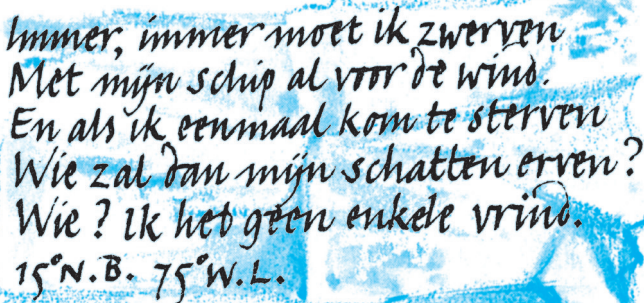 Immer, immer moet ik zwerven
Met mijn schip al voor de wind.
En als ik eenmaal kom te sterven
Wie zal dan mijn schatten erven?
Wie? Ik heb geen enkele vrind.
15°N.B. 75°W.L.